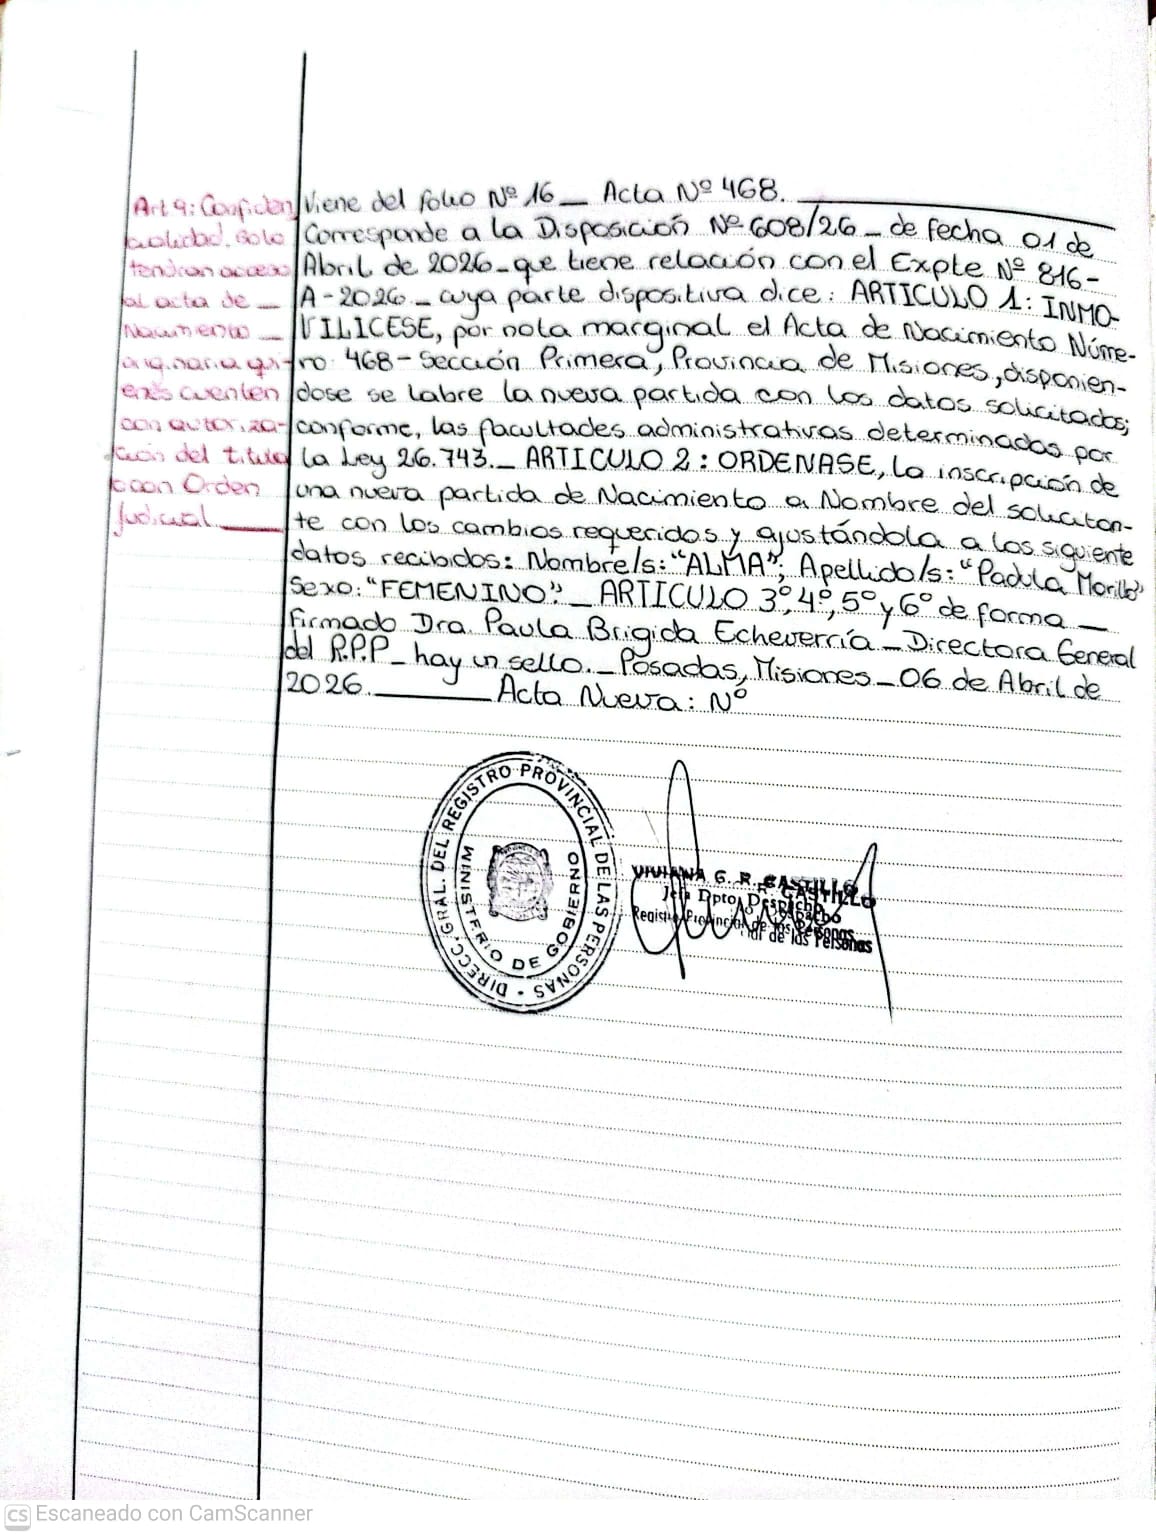 Art 9: Confiden
cialidad. Solo
tendran acceso
al acta de _
Nacimiento _
originaria qui-
enes cuenten
con autoriza-
ción del titular
o con Orden
Judicial
Viene del folio Nº 16 _ Acta Nº 468.
Corresponde a la Disposición Nº 608/26 _ de fecha 01 de
Abril de 2026 _ que tiene relación con el Expte Nº 816-
A-2026 _ cuya parte dispositiva dice: ARTICULO 1: INMO-
VILICESE, por nota marginal el Acta de Nacimiento Núme-
ro 468 - Sección Primera, Provincia de Misiones, disponien-
dose se labre la nueva partida con los datos solicitados;
conforme, las facultades administrativas determinadas por
la Ley 26.743. _ ARTICULO 2: ORDENASE, la inscripción de
una nueva partida de Nacimiento a Nombre del solicitan-
te con los cambios requeridos y ajustándola a los siguiente
datos recibidos: Nombre/s: "ALMA"; Apellido/s: "Padula Morillo"
Sexo: "FEMENINO". _ ARTICULO 3º, 4º, 5º y 6º de forma _
Firmado Dra. Paula Brigida Echeverría _ Directora General
del R.P.P _ hay un sello. _ Posadas, Misiones _ 06 de Abril de
2026. ______ Acta Nueva: Nº
DIRECC. GRAL. DEL REGISTRO PROVINCIAL DE LAS PERSONAS -
MINISTERIO DE GOBIERNO
VIVIANA G. R. CASTILLO
Jefa Dpto. Despacho
Registro Provincial de las Personas
CS Escaneado con CamScanner